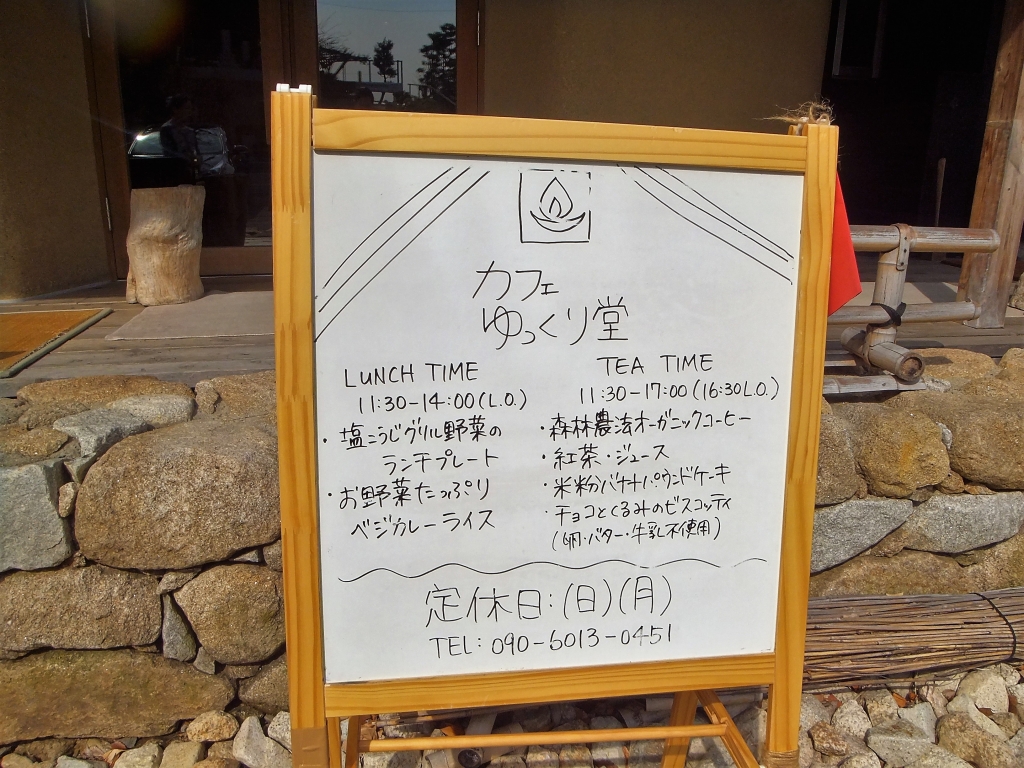 カフェ
ゆっくり堂
LUNCH TIME
11:30-14:00(L.O.)
・塩こうじグリル野菜の
ランチプレート
・お野菜たっぷり
ベジカレーライス
TEA TIME
11:30-17:00(16:30L.O.)
・森林農法オーガニックコーヒー
・紅茶・ジュース
・米粉バナナパウンドケーキ
・チョコとくるみのビスコッティ
(卵・バター・牛乳不使用)
定休日:(日)(月)
TEL:090-6013-0451